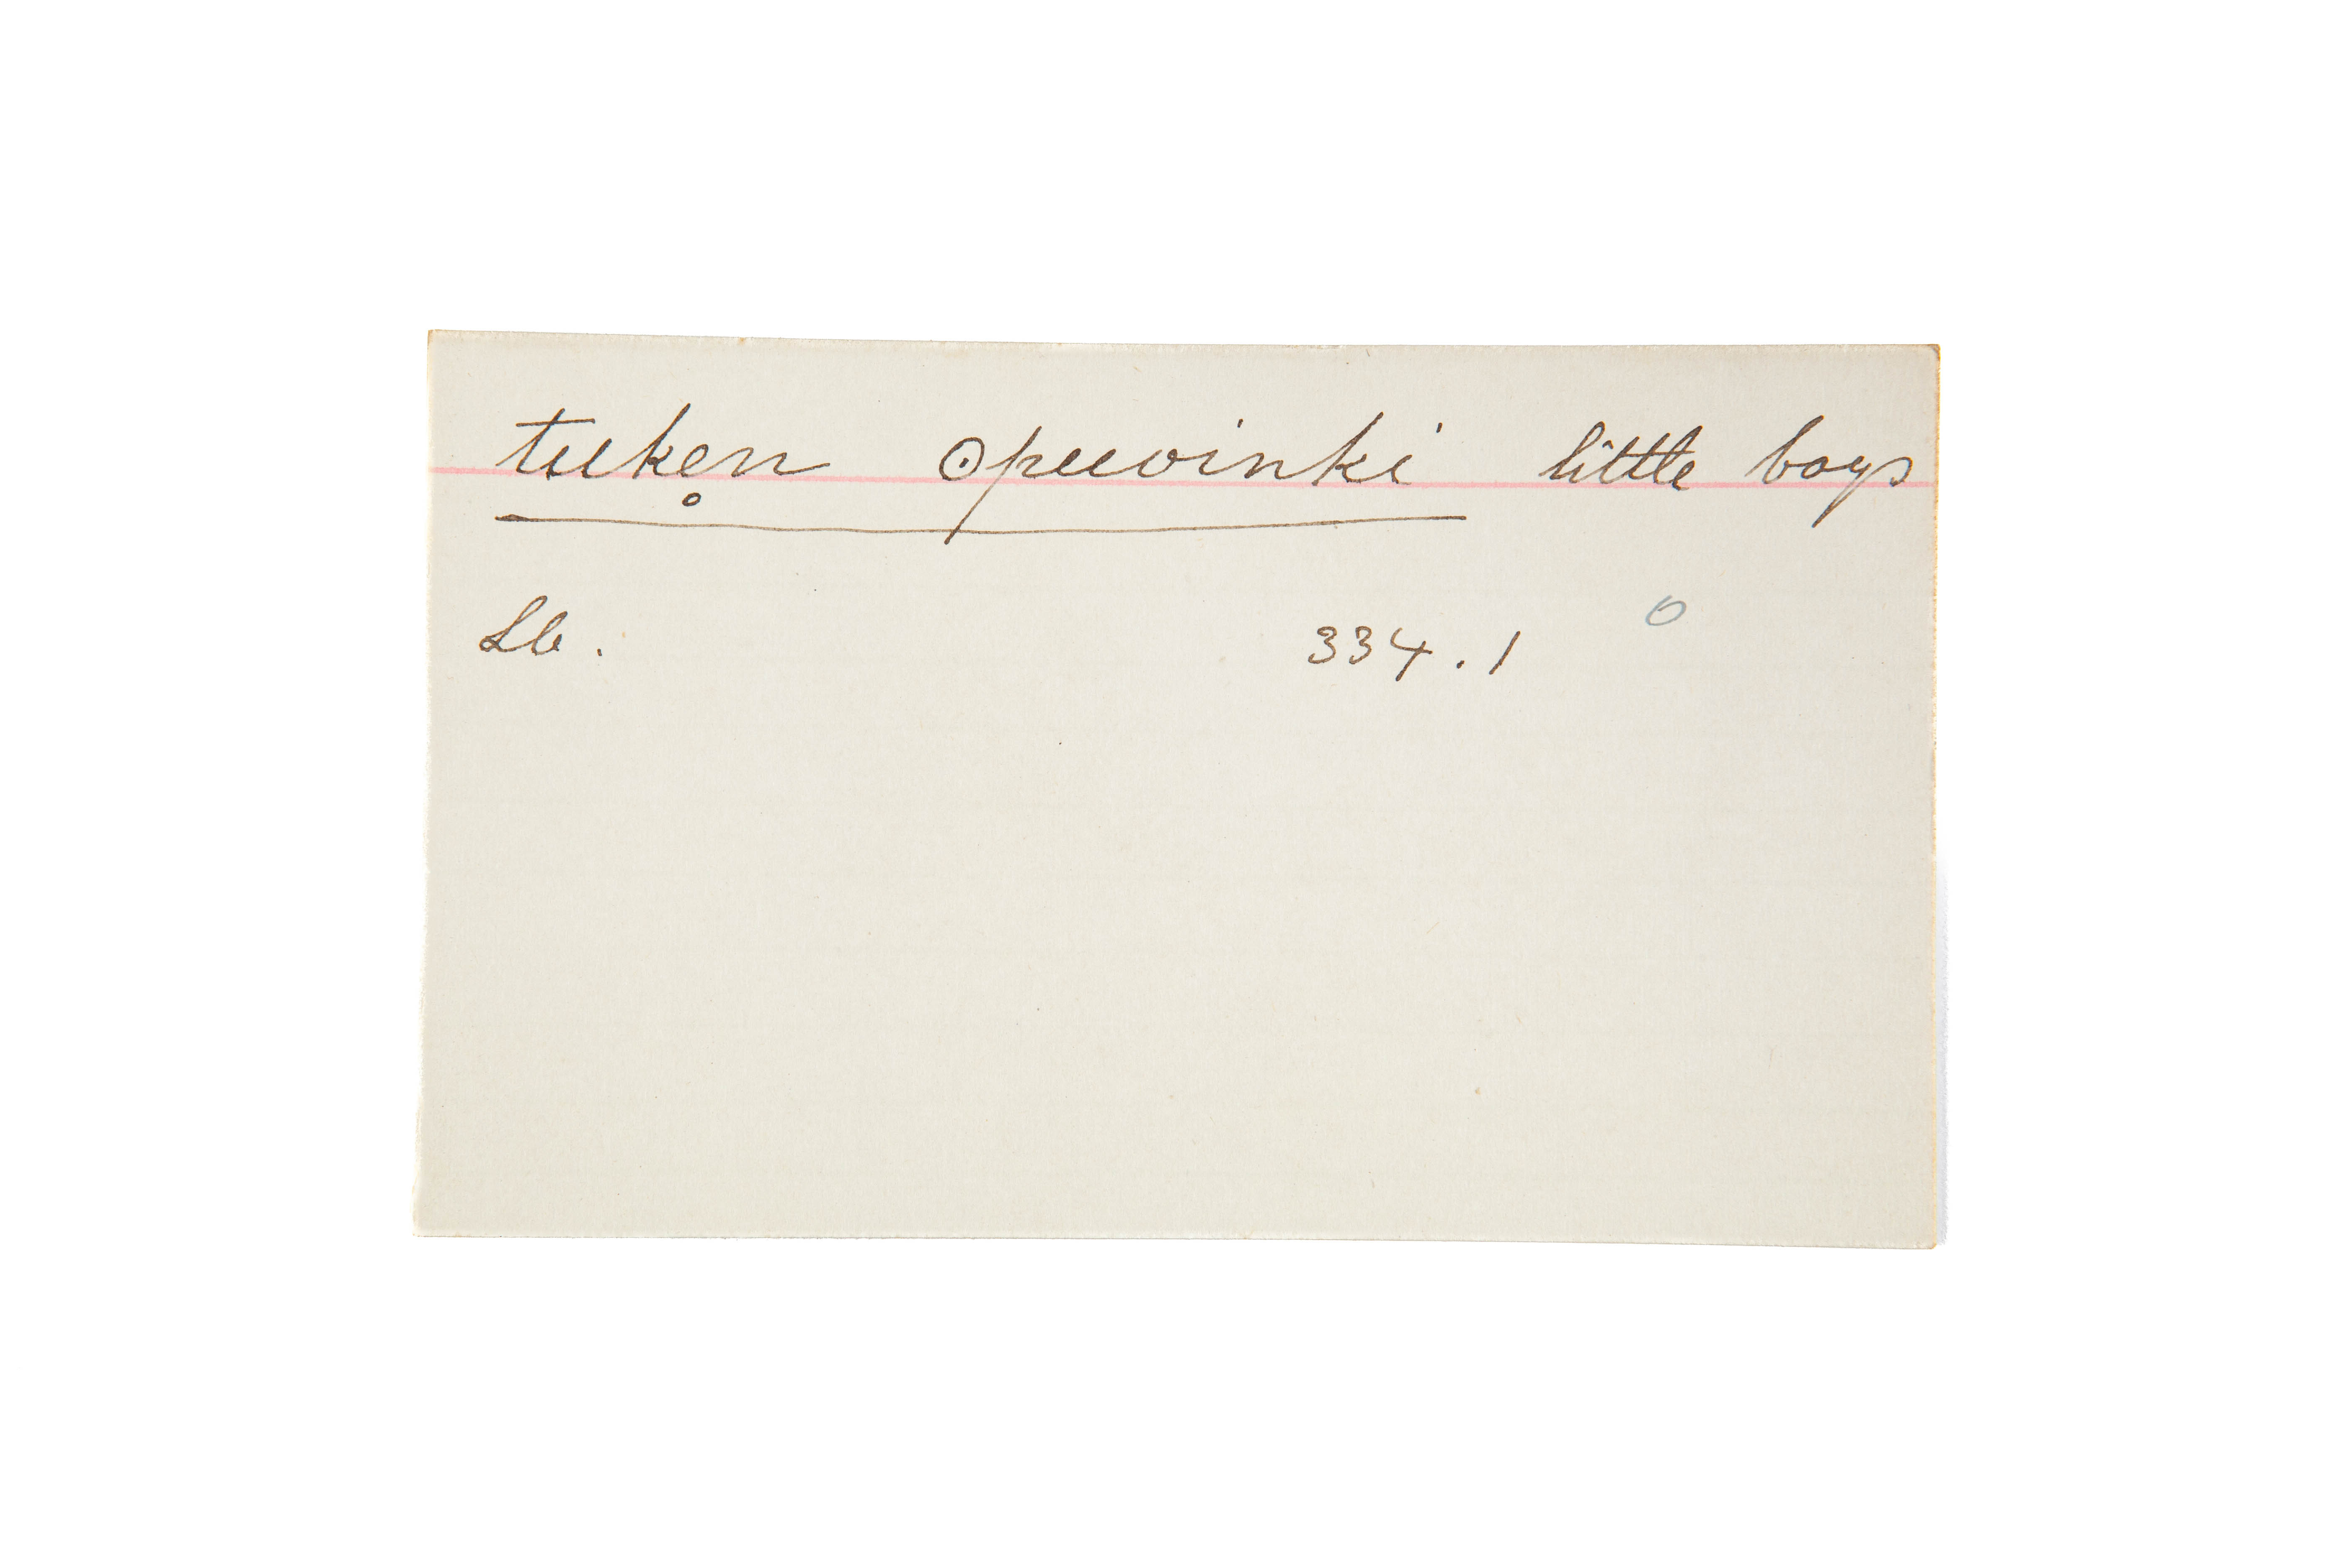 tuke̥n ʘpuoinki little boys
Lb. 334.1 0